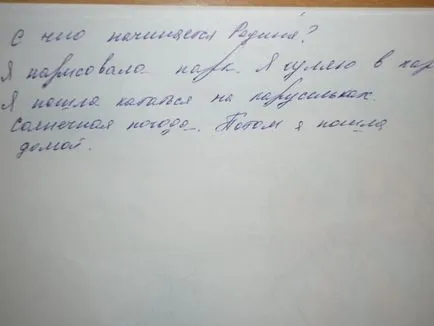 С чего начинается Родина?
Я нарисовала парк. Я гуляю в пар
Я пошла кататься на карусельках.
Солнечная погода. Потом я пошла
домой.